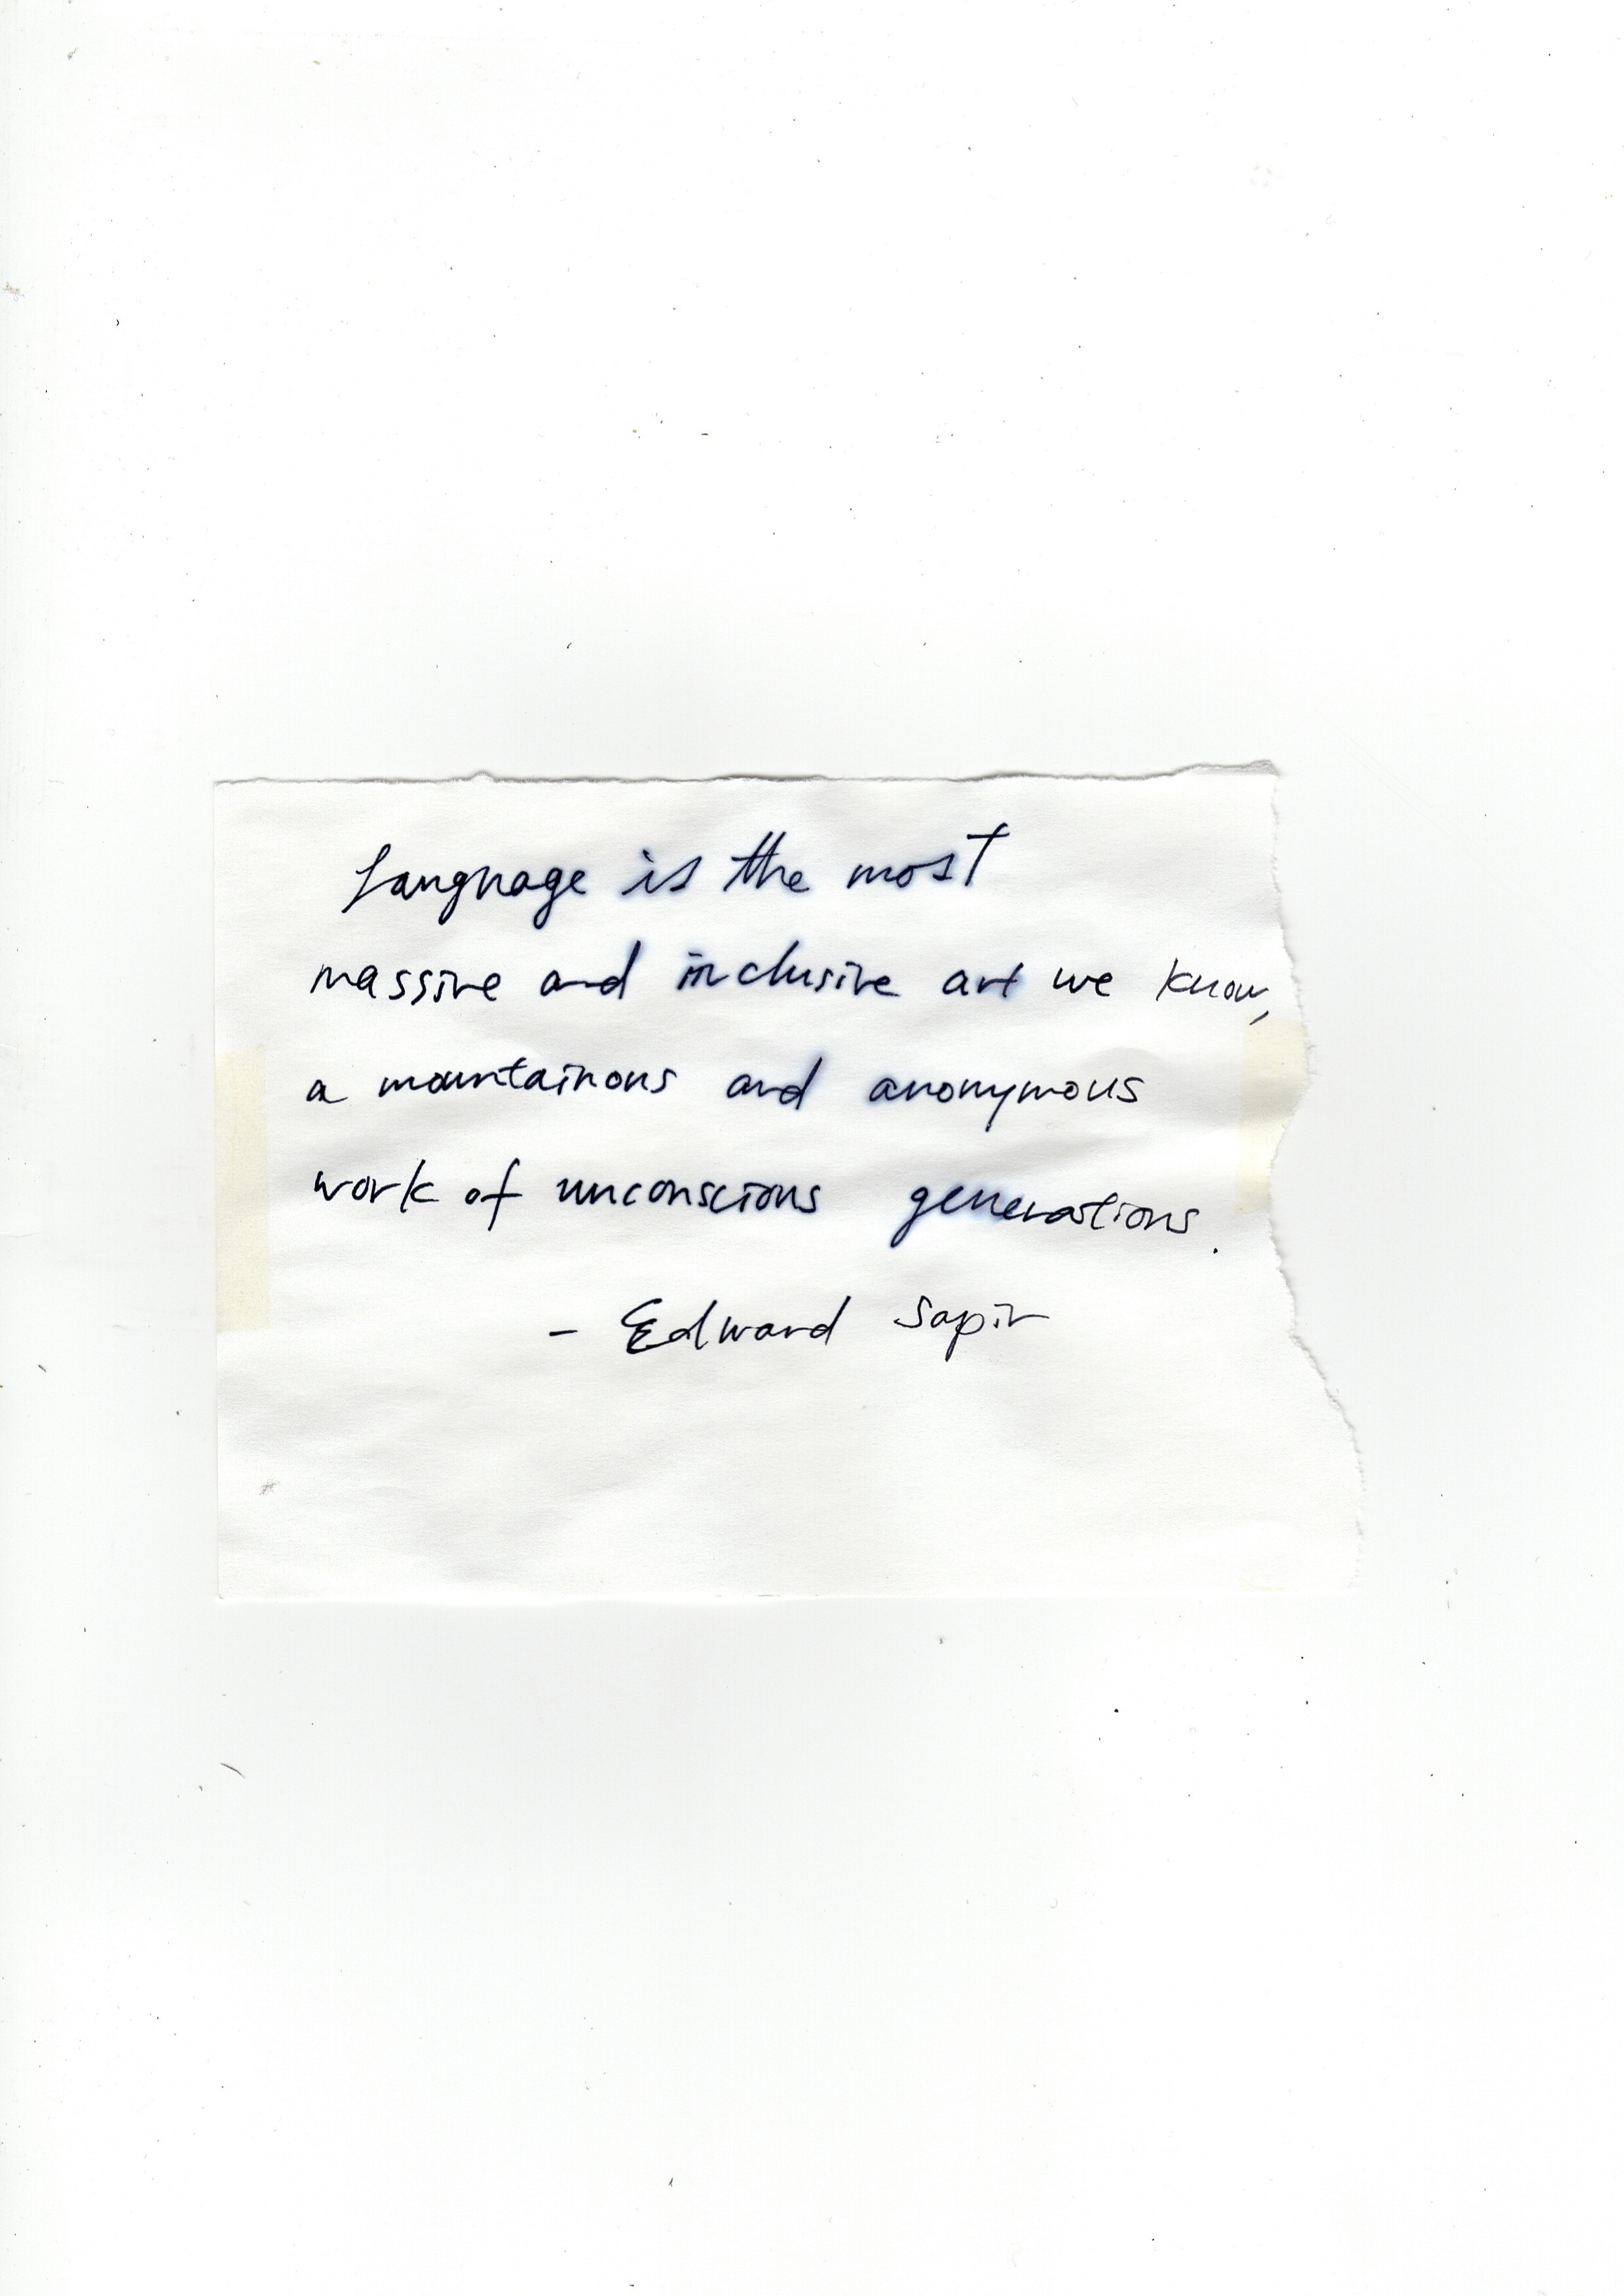 Language is the most
massive and inclusive art we know,
a mountainous and anonymous
work of unconscious generations.
- Edward Sapir